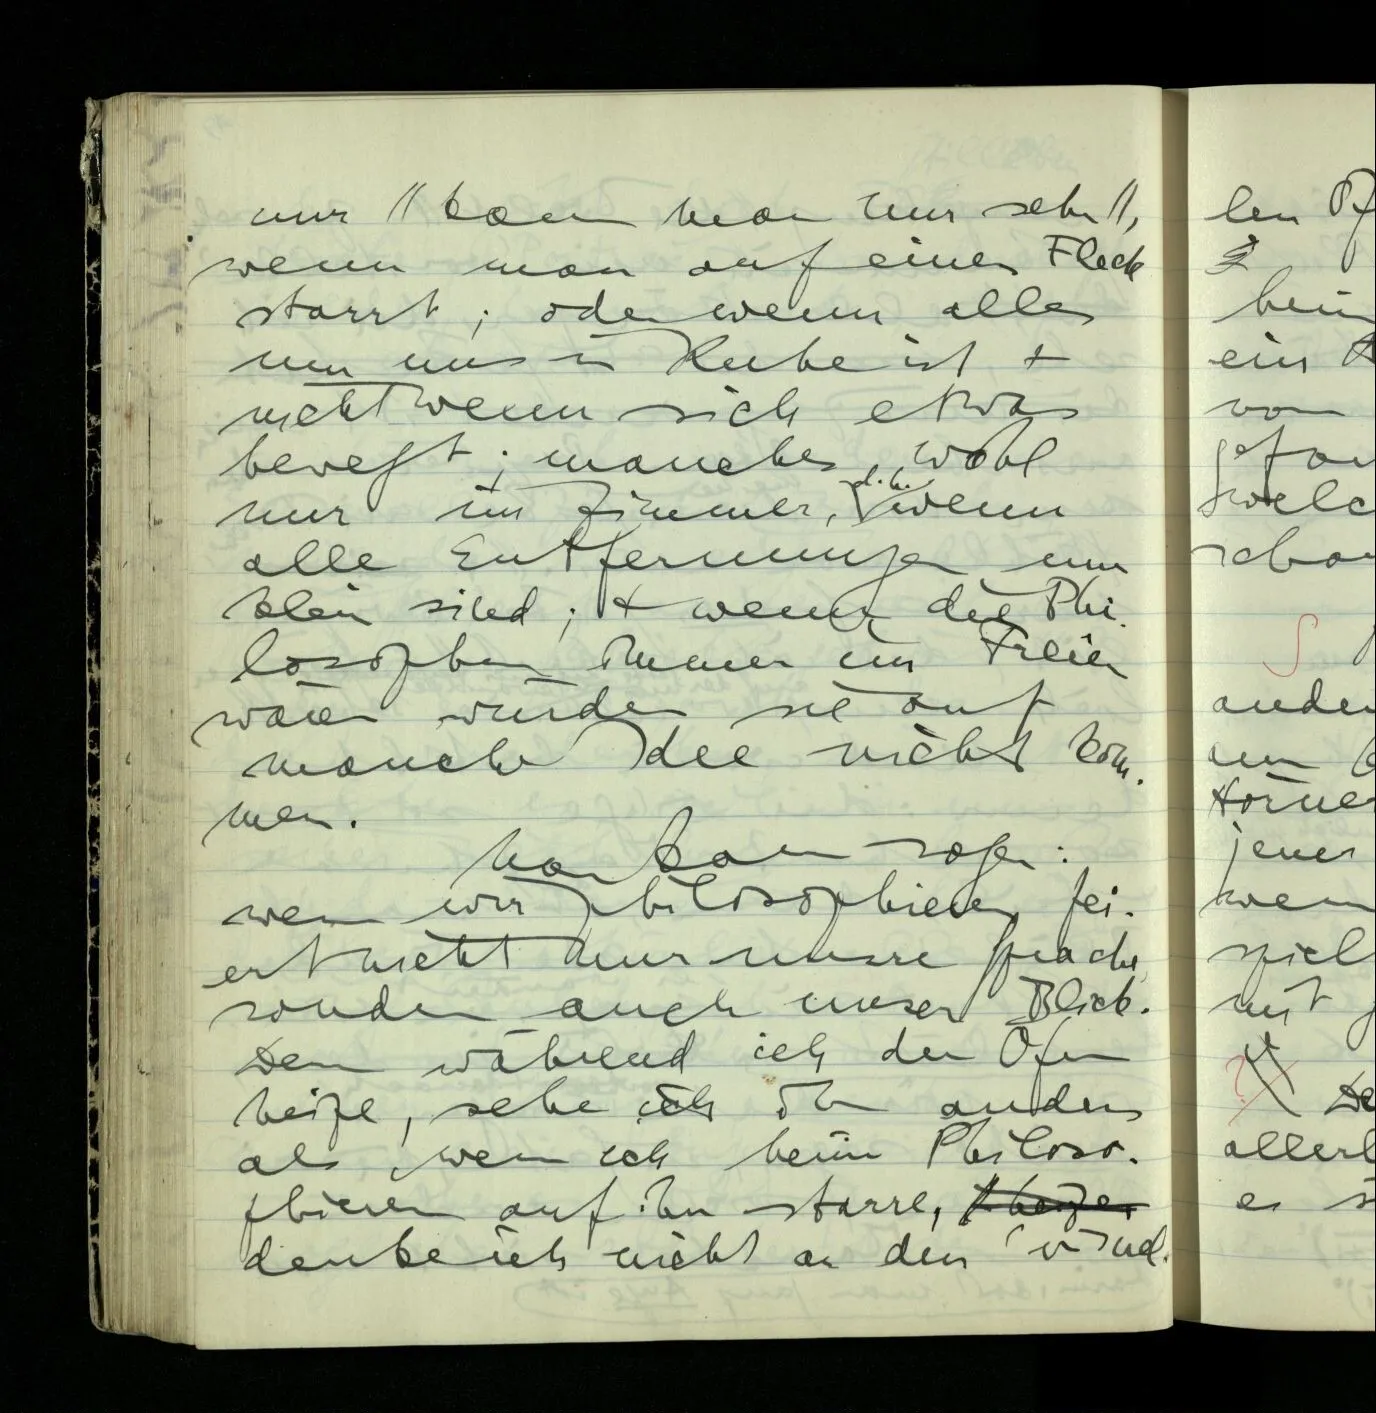 nur // kann man nur sehn //,
wenn man auf einen Fleck
starrt; oder wenn alles
um uns in Ruhe ist +
nicht wenn sich etwas
bewegt; manches wohl
nur im Zimmer, d.h. wenn
alle Entfernungen nun
klein sind; + wenn die Phi-
losophen immer im Freien
wären würden sie auf
manche Idee nicht kom-
men.
Man kann sagen:
wenn wir philosophieren, fei-
ert nicht nur unsre Sprache,
sondern auch unser Blick.
Denn während ich den Ofen
heize, sehe ich ihn anders
als wenn ich beim Philoso-
phieren auf ihn starre,
denke ich nicht an den ‘visuel-
len
ein
von
ander
um
jener
spiel
mit
es